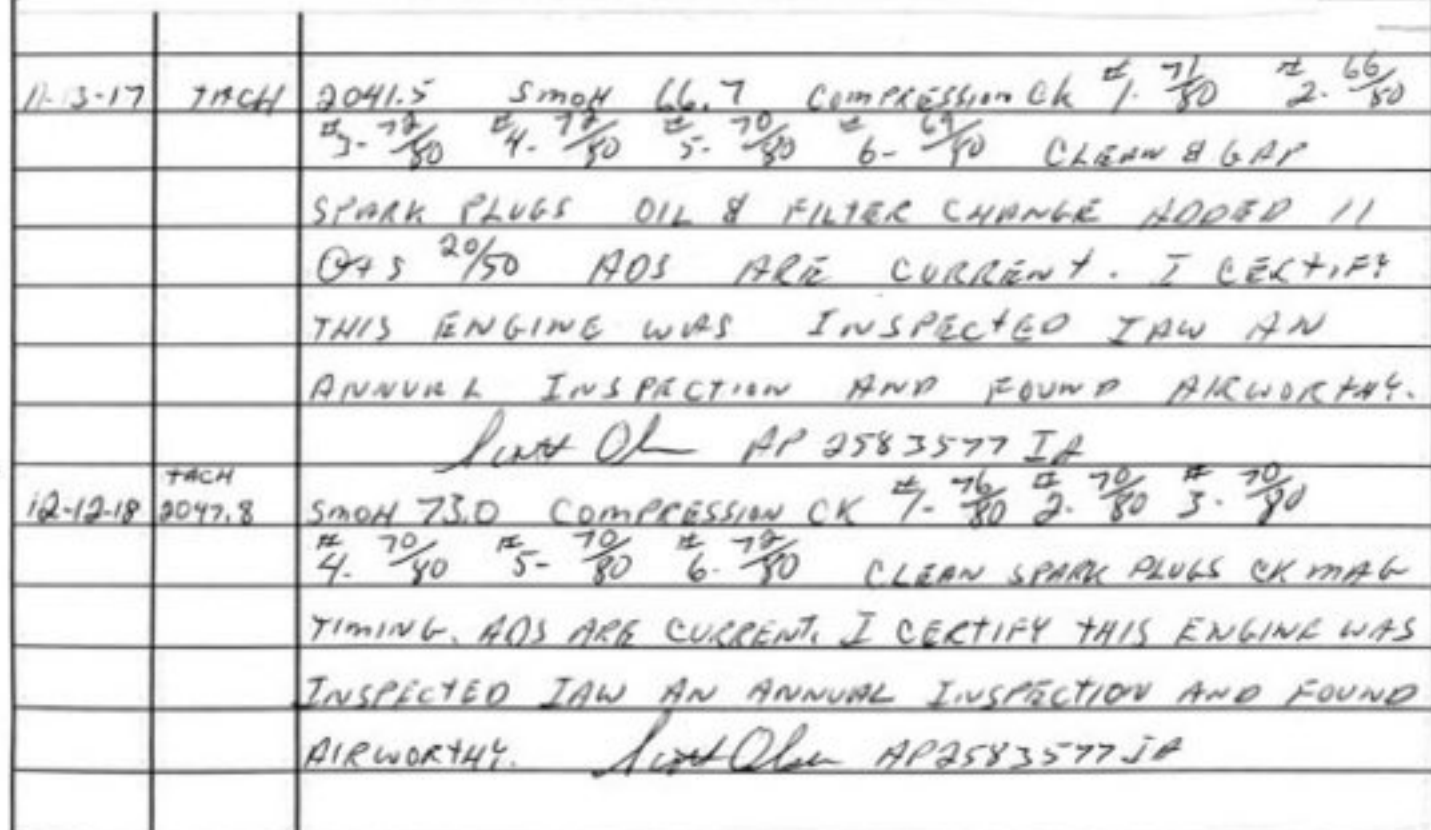 11-13-17 TACH 2041.5 SMOH 66.7 COMPRESSION CK #1. 71/80 #2. 66/80
#3- 72/80 #4- 72/80 #5- 70/80 #6- 69/80 CLEAN & GAP
SPARK PLUGS OIL & FILTER CHANGE ADDED 11
QTS 20/50 ADS ARE CURRENT. I CERTIFY
THIS ENGINE WAS INSPECTED IAW AN
ANNUAL INSPECTION AND FOUND AIRWORTHY.
Scott Olsen AP 2583577 IA
TACH
12-12-18 2047.8 SMOH 73.0 COMPRESSION CK #1- 76/80 #2. 70/80 #3. 70/80
#4. 70/80 #5- 70/80 #6. 72/80 CLEAN SPARK PLUGS CK MAG
TIMING. ADS ARE CURRENT. I CERTIFY THIS ENGINE WAS
INSPECTED IAW AN ANNUAL INSPECTION AND FOUND
AIRWORTHY. Scott Olsen AP2583577IA